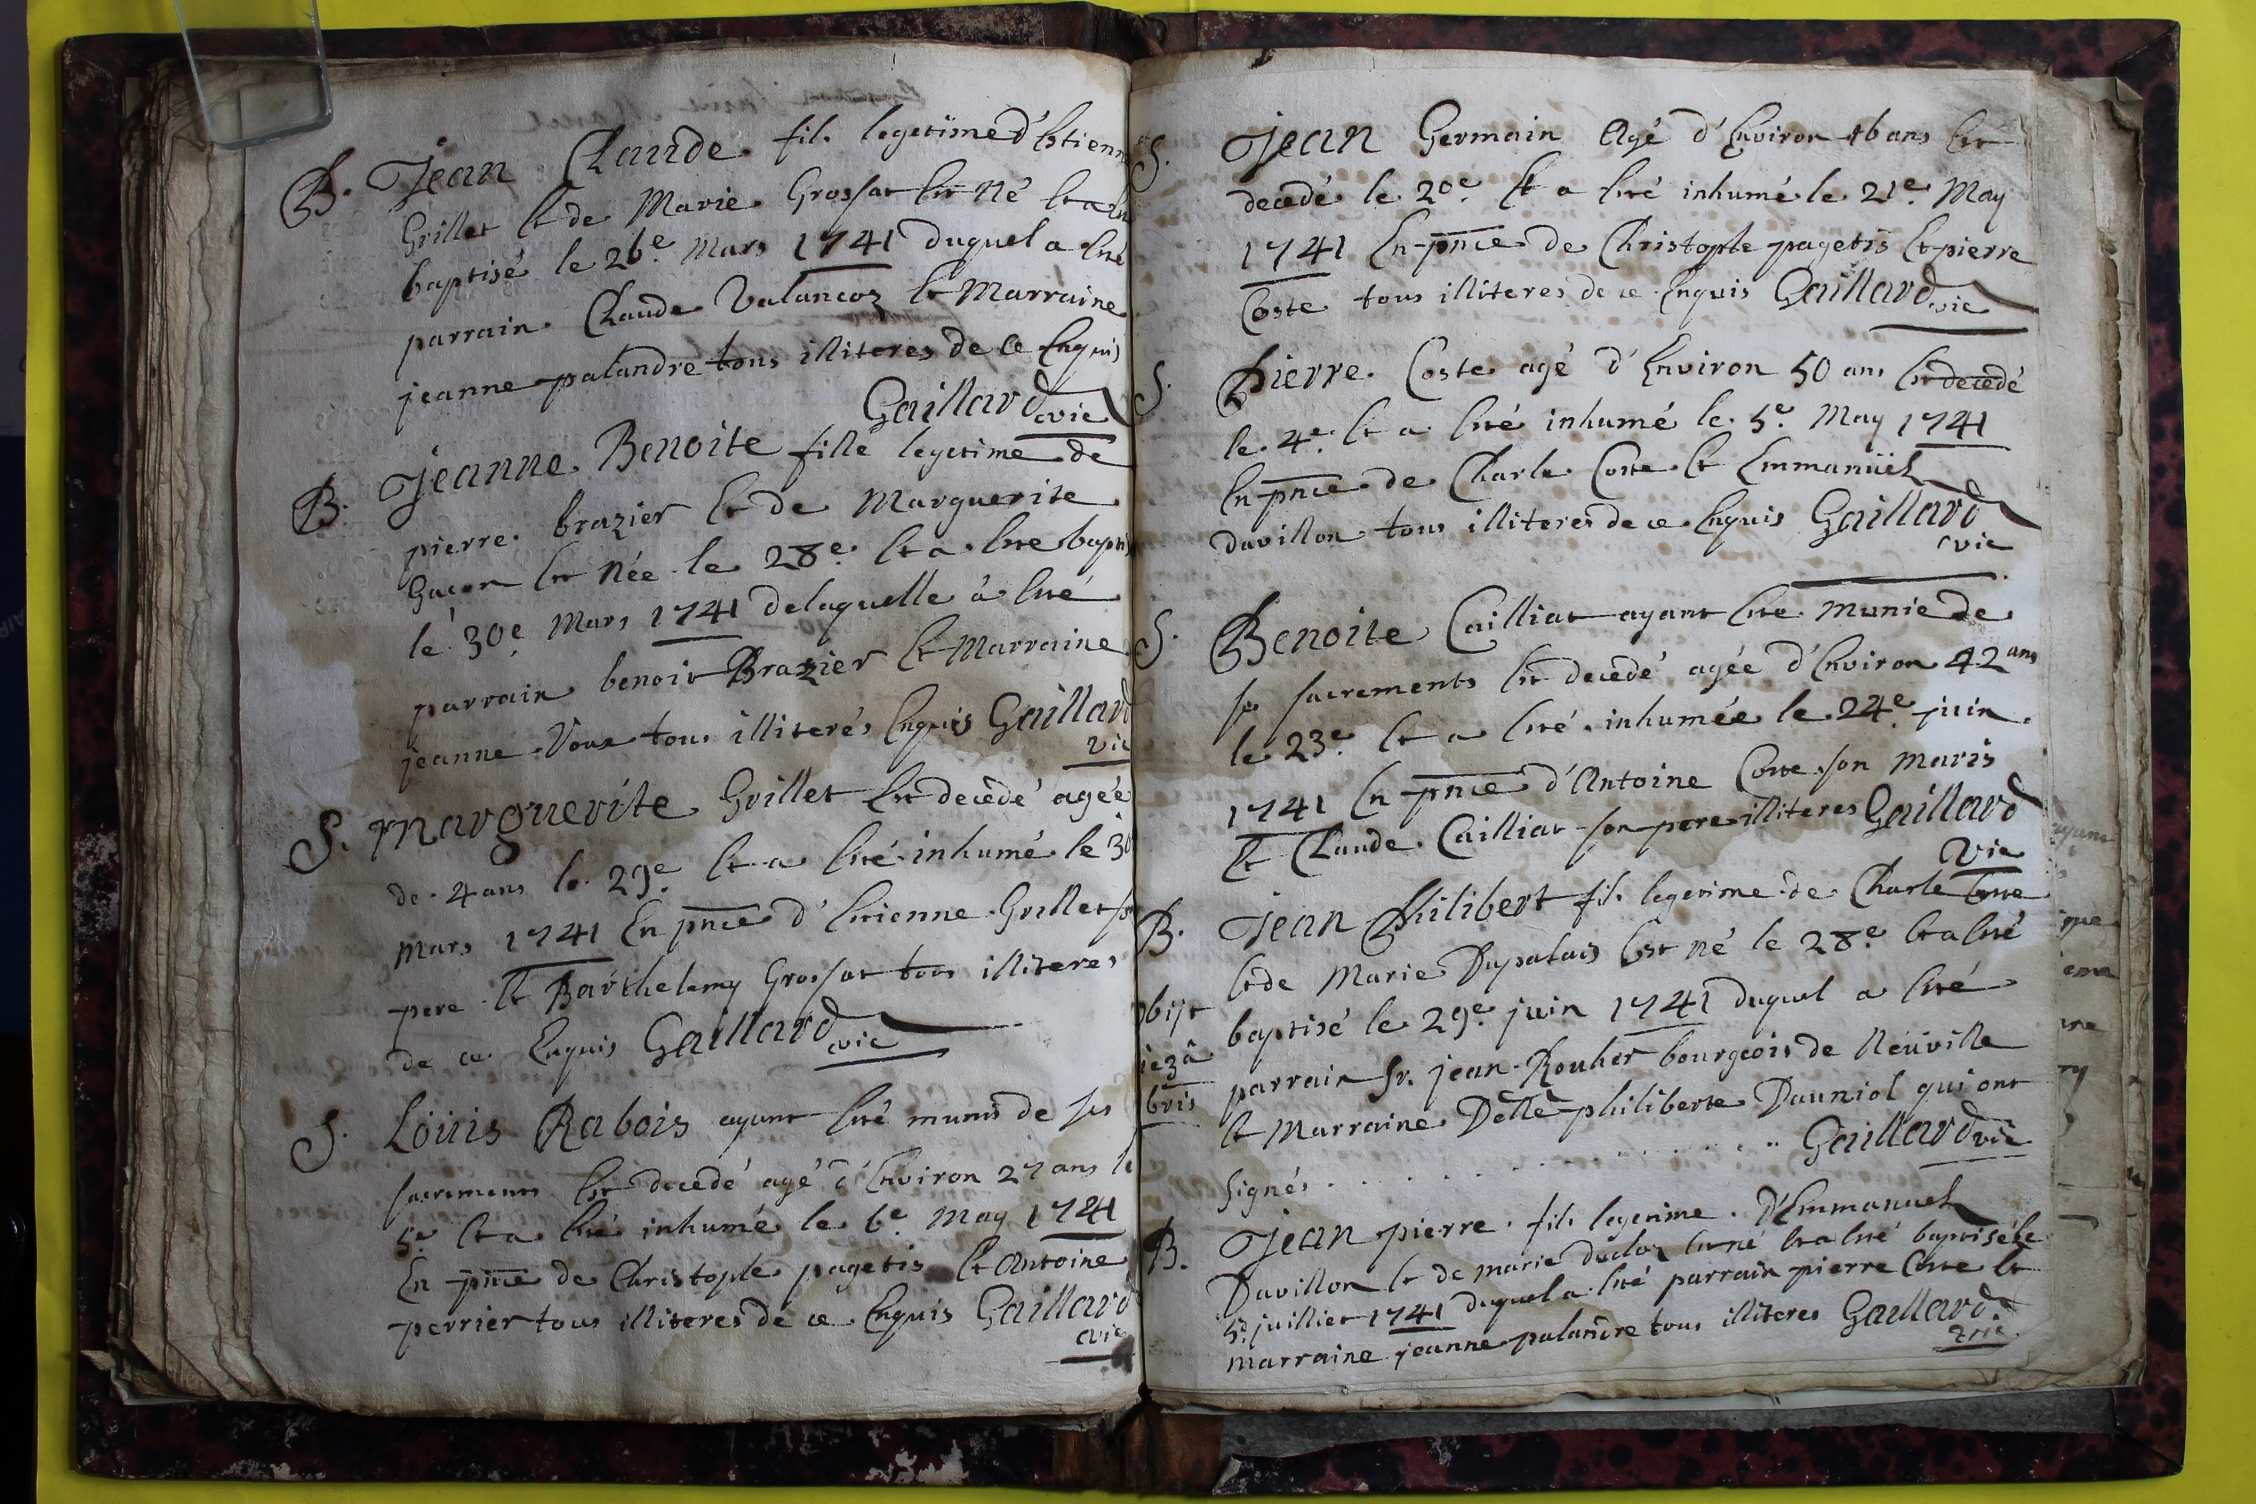 B. Jean Claude fils legetime d'Estienne
Grillet Et de Marie Grossat Est Né Et a Eté
baptisé le 26e Mars 1741 duquel a Eté
parrain Claude Valancoz Et Marraine
jeanne palandre tous illiteres de ce Enquis
Gaillard vic
B. Jeanne Benoite fille legetime de
pierre brazier Et de Marguerite
Gacon Est Née le 28e Et a Eté bapti
le 30e Mars 1741 delaquelle à Eté
parrain benoit Brazier Et Marraine
jeanne Voux tous illiterés Enquis Gaillard
vic
S. Marguerite Grillet Est decedé agée
de 4 ans le 29e Et a Eté inhumé le 30
Mars 1741 En pnce d'Etienne Grillet
pere Et Barthelemy Grossat tous illiteres
de ce Enquis Gaillard vic
S. Loüis Rabois ayant Eté munis de ses
sacrements Est decedé agé d'Environ 27 ans le
5e Et a Eté inhumé le 6e May 1741
En pnce de Christople pagetis Et Antoine
perrier tous illiteres de ce Enquis Gaillard
vic
S. Jean Germain Agé d'Environ 46 ans Est
decedé le 20e Et a Eté inhumé le 21e May
1741 En pnce de Christople pagetis Et pierre
Coste tous illiteres de ce Enquis Gaillard vic
S. Pierre Coste agé d'Environ 50 ans Est decedé
le 4e Et a Eté inhumé le 5e May 1741
En pnce de Charle Coste Et Emmanüel
davillon tous illiteres de ce Enquis Gaillard
vic
S. Benoite Cailliat ayant Eté munie de
ses sacrements Est decedé agée d'Environ 42 ans
le 23e Et a Eté inhumée le 24e juin
1741 En pnce d'Antoine Coste son maris
Et Claude Cailliat son pere illiteres Gaillard
Vic
B. Jean Philibert fils legetime de Charle Coste
Et de Marie Dupalais Est né le 28e Et a Eté
baptisé le 29e juin 1741 duquel a Eté
parrain Sr. jean Rouher bourgeois de Neuville
Et Marraine Delle philiberte Dauniol qui ont
Signés Gaillard vic
B. Jean pierre fils legetime D'Emmanuel
Davillon Et de marie ducloz Est né Et a Eté baptisé le
5e juillier 1741 duquel a Eté parrain pierre Coste Et
marraine jeanne palandre tous illiteres Gaillard
vic